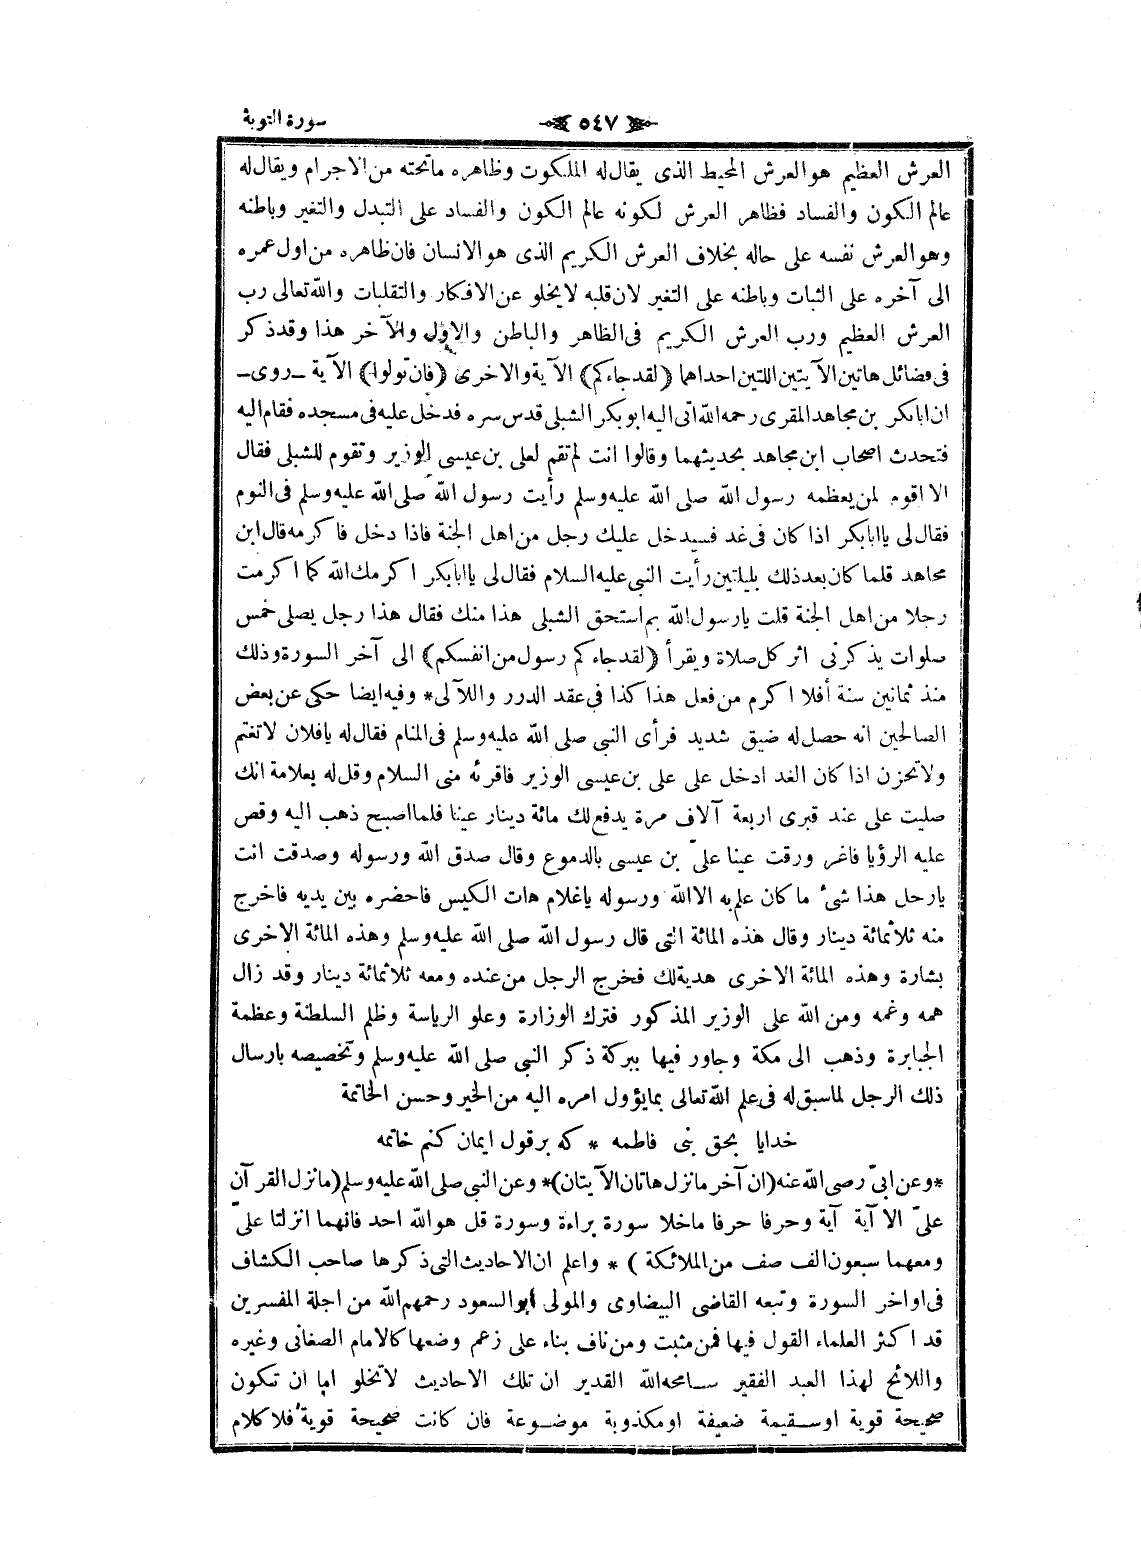 سورة التوبة
٥٤٧
العرش العظيم هو العرش المحيط الذى يقال له الملكوت وظاهره ماتحته من الاجرام ويقال له
عالم الكون والفساد فظاهر العرش لكونه عالم الكون والفساد على التبدل والتغير وباطنه
وهو العرش نفسه على حاله بخلاف العرش الكريم الذى هو الانسان فان ظاهره من اول عمره
الى آخره على الثبات وباطنه على التغير لان قلبه لايخلو عن الافكار والتقلبات والله تعالى رب
العرش العظيم ورب العرش الكريم فى الظاهر والباطن والاول والآخر هذا وقد ذكر
فى فضائل هاتين الآيتين اللتين احداهما (لقد جاءكم) الآية والاخرى (فان تولوا) الآية ـ روى ـ
ان ابابكر بن مجاهد المقرى رحمه الله اتى اليه ابو بكر الشبلى قدس سره فدخل عليه فى مسجده فقام اليه
فتحدث اصحاب ابن مجاهد بحديثهما وقالوا انت لم تقم لعلى بن عيسى الوزير وتقوم للشبلى فقال
الا اقوم لمن يعظمه رسول الله صلى الله عليه وسلم رأيت رسول الله صلى الله عليه وسلم فى النوم
فقال لى ياابابكر اذا كان فى غد فسيدخل عليك رجل من اهل الجنة فاذا دخل فاكرمه قال ابن
مجاهد قلما كان بعد ذلك بليلتين رأيت النبى عليه السلام فقال لى ياابابكر اكرمك الله كما اكرمت
رجلا من اهل الجنة قلت يارسول الله بم استحق الشبلى هذا منك فقال هذا رجل يصلى خمس
صلوات يذكرنى اثر كل صلاة ويقرأ (لقد جاءكم رسول من انفسكم) الى آخر السورة وذلك
منذ ثمانين سنة أفلا اكرم من فعل هذا كذا فى عقد الدرر واللآلى * وفيه ايضا حكى عن بعض
الصالحين انه حصل له ضيق شديد فرأى النبى صلى الله عليه وسلم فى المنام فقال له يافلان لاتغتم
ولاتحزن اذا كان الغد ادخل على على بن عيسى الوزير فاقرئه منى السلام وقل له بعلامة انك
صليت على عند قبرى اربعة آلاف مرة يدفع لك مائة دينار عينا فلما اصبح ذهب اليه وقص
عليه الرؤيا فاغر ورقت عينا علىّ بن عيسى بالدموع وقال صدق الله ورسوله وصدقت انت
يارجل هذا شئ ما كان علم به الا الله ورسوله ياغلام هات الكيس فاحضره بين يديه فاخرج
منه ثلاثمائة دينار وقال هذه المائة التى قال رسول الله صلى الله عليه وسلم وهذه المائة الاخرى
بشارة وهذه المائة الاخرى هدية لك فخرج الرجل من عنده ومعه ثلاثمائة دينار وقد زال
همه وغمه ومن الله على الوزير المذكور فترك الوزارة وعلو الرياسة وظلم السلطنة وعظمة
الجبابرة وذهب الى مكة وجاور فيها ببركة ذكر النبى صلى الله عليه وسلم وتخصيصه بارسال
ذلك الرجل لماسبق له فى علم الله تعالى بمايؤول امره اليه من الخير وحسن الخاتمة
خدايا بحق بنى فاطمه * كه بر قول ايمان كنم خاتمه
* وعن ابىّ رصى الله عنه (ان آخر مانزل هاتان الآيتان) * وعن النبى صلى الله عليه وسلم (مانزل القرآن
علىّ الا آية آية وحرفا حرفا ماخلا سورة براءة وسورة قل هو الله احد فانهما انزلتا علىّ
ومعهما سبعون الف صف من الملائكة ) * واعلم ان الاحاديث التى ذكرها صاحب الكشاف
فى اواخر السورة وتبعه القاضى البيضاوى والمولى أبو السعود رحمهم الله من اجلة المفسرين
قد اكثر العلماء القول فيها فمن مثبت ومن ناف بناء على زعم وضعها كالامام الصغانى وغيره
واللائح لهذا العبد الفقير سامحه الله القدير ان تلك الاحاديث لاتخلو اما ان تكون
صحيحة قوية اوسقيمة ضعيفة اومكذوبة موضوعة فان كانت صحيحة قوية فلا كلام